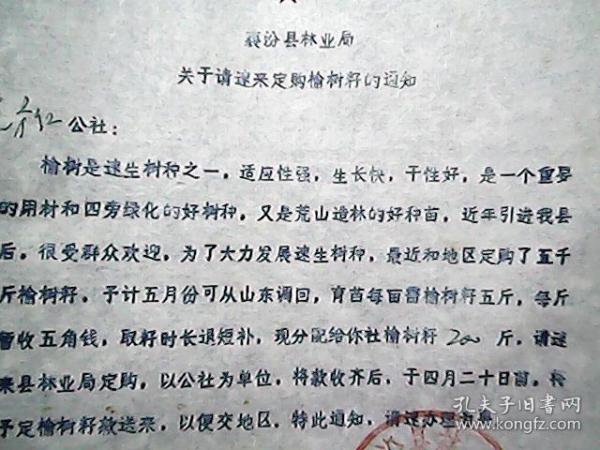 襄汾县林业局
关于请速来定购榆树籽的通知
公社：
榆树是速生树种之一，适应性强，生长快，干性好，是一个重要
的用材和四旁绿化的好树种，又是荒山造林的好种苗，近年引进我县
后。很受群众欢迎，为了大力发展速生树种，最近和地区定购了五千
斤榆树籽。予计五月份可从山东调回，育苗每亩需榆树籽五斤，每斤
暂收五角钱，取籽时长退短补，现分配给你社榆树籽200斤，请速
来县林业局定购，以公社为单位，将款收齐后，于四月二十日前，将
予定榆树籽款送来，以便交地区，特此通知，请速办理为
孔夫子旧书网
www.kongfz.com